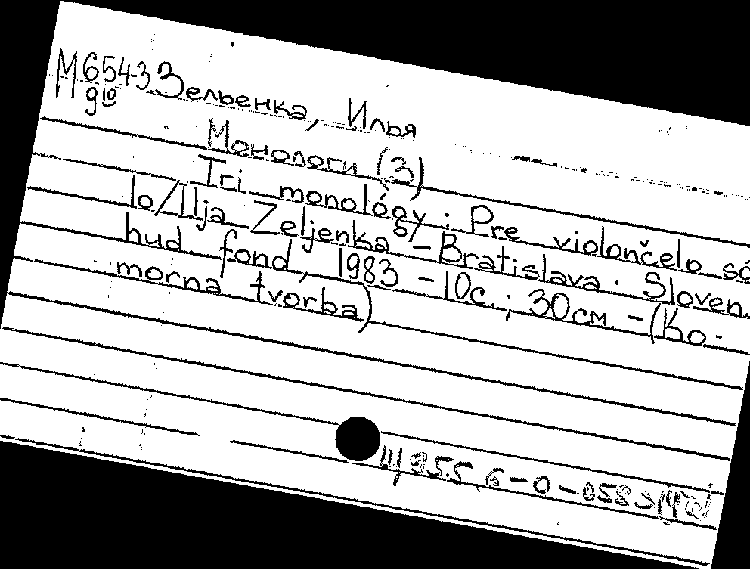 М6543 Зельенка, Илья
910
Монологи (3)
Tri monológy : Pre violončelo só
lo/Ilja Zeljenka – Bratislava : Sloven.
hud fond, 1983 – 10с. ; 30см – (Ko-
morna tvorba)